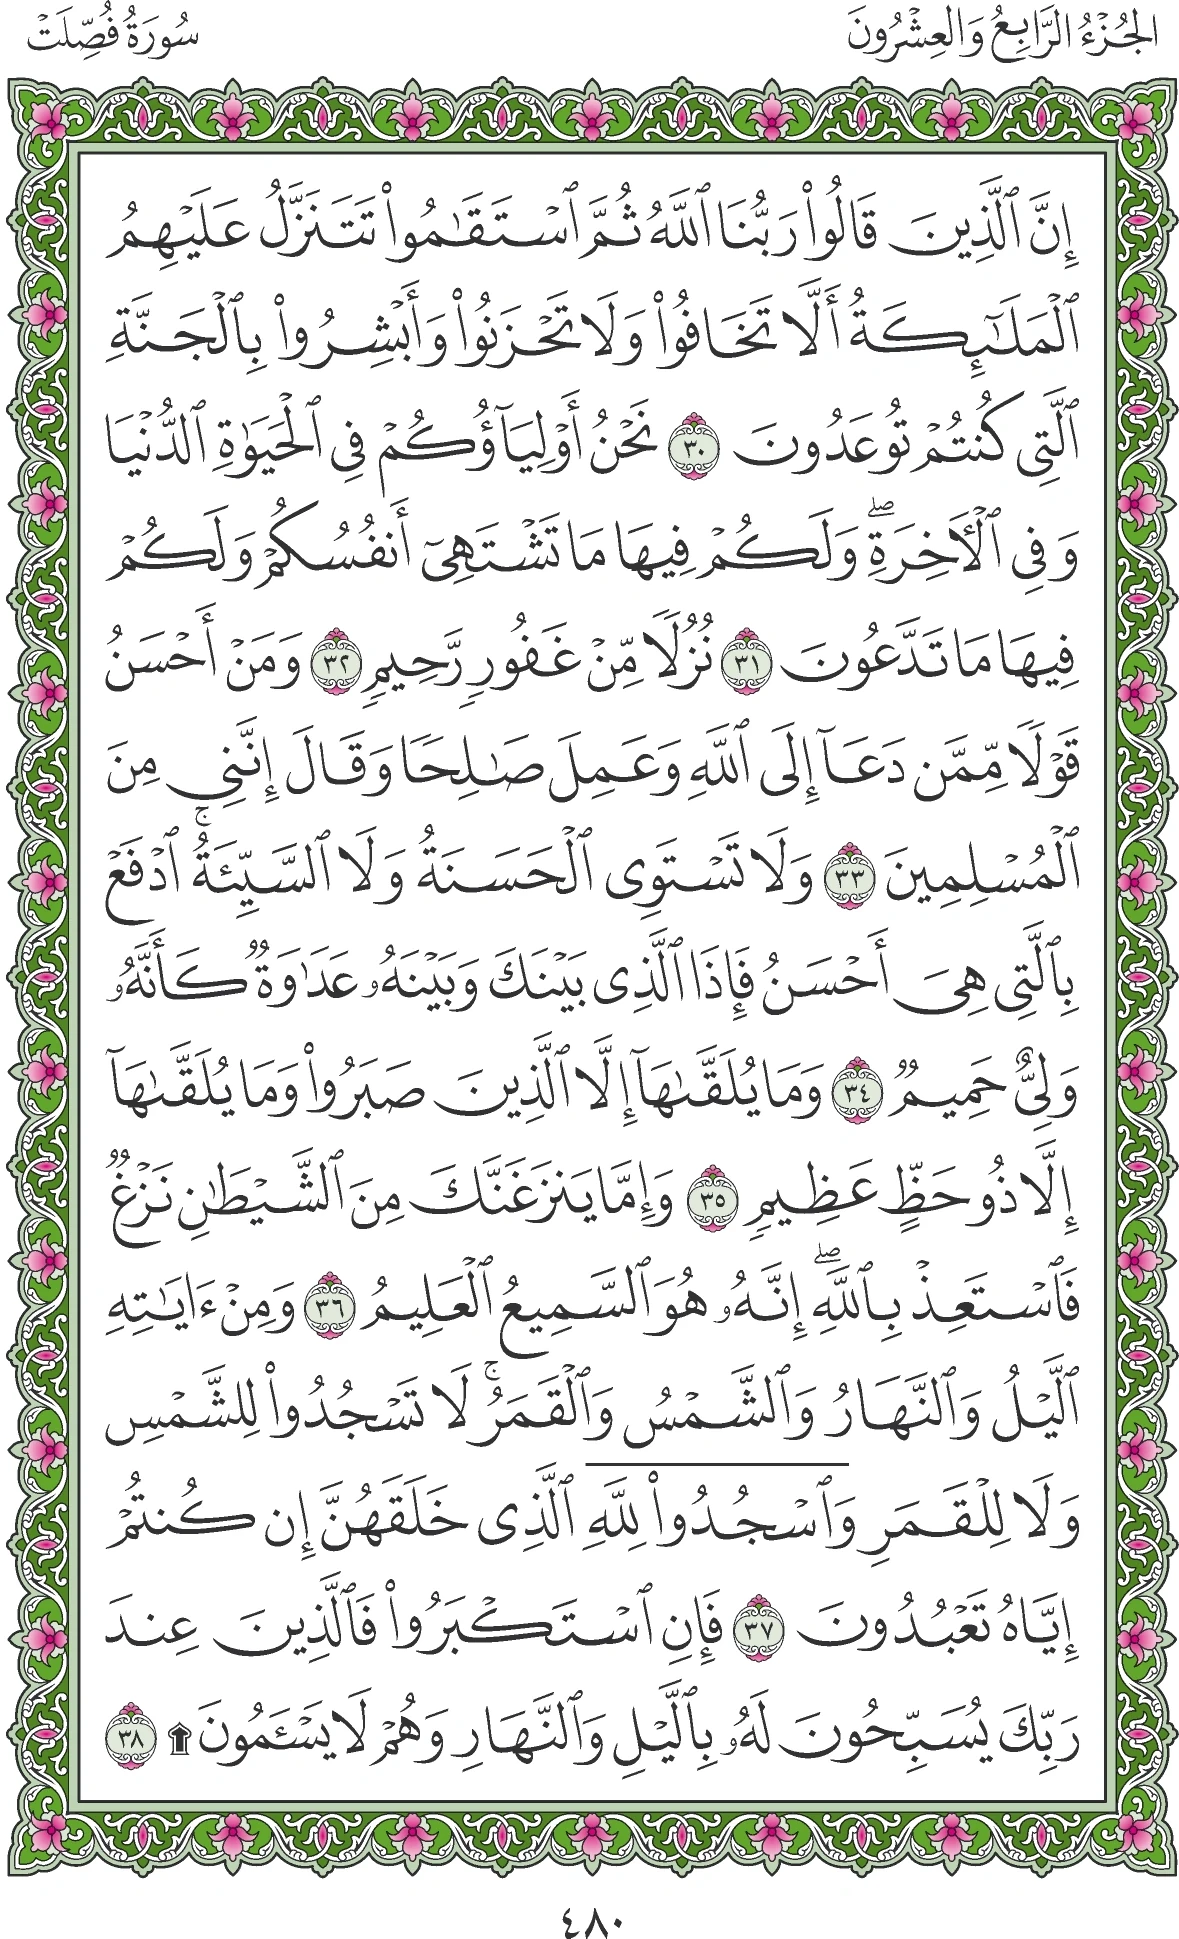 الجُزْءُ الرَّابِعُ وَالعِشْرُونَ
سُورَةُ فُصِّلَتْ
إِنَّ ٱلَّذِينَ قَالُواْ رَبُّنَا ٱللَّهُ ثُمَّ ٱسْتَقَٰمُواْ تَتَنَزَّلُ عَلَيْهِمُ
ٱلْمَلَٰٓئِكَةُ أَلَّا تَخَافُواْ وَلَا تَحْزَنُواْ وَأَبْشِرُواْ بِٱلْجَنَّةِ
ٱلَّتِى كُنتُمْ تُوعَدُونَ ٣٠ نَحْنُ أَوْلِيَآؤُكُمْ فِى ٱلْحَيَوٰةِ ٱلدُّنْيَا
وَفِى ٱلْأَخِرَةِۖ وَلَكُمْ فِيهَا مَا تَشْتَهِىٓ أَنفُسُكُمْ وَلَكُمْ
فِيهَا مَا تَدَّعُونَ ٣١ نُزُلًا مِّنْ غَفُورٍ رَّحِيمٍ ٣٢ وَمَنْ أَحْسَنُ
قَوْلًا مِّمَّن دَعَآ إِلَى ٱللَّهِ وَعَمِلَ صَٰلِحًا وَقَالَ إِنَّنِى مِنَ
ٱلْمُسْلِمِينَ ٣٣ وَلَا تَسْتَوِى ٱلْحَسَنَةُ وَلَا ٱلسَّيِّئَةُۚ ٱدْفَعْ
بِٱلَّتِى هِىَ أَحْسَنُ فَإِذَا ٱلَّذِى بَيْنَكَ وَبَيْنَهُۥ عَدَٰوَةٌ كَأَنَّهُۥ
وَلِىٌّ حَمِيمٌ ٣٤ وَمَا يُلَقَّىٰهَآ إِلَّا ٱلَّذِينَ صَبَرُواْ وَمَا يُلَقَّىٰهَآ
إِلَّا ذُو حَظٍّ عَظِيمٍ ٣٥ وَإِمَّا يَنزَغَنَّكَ مِنَ ٱلشَّيْطَٰنِ نَزْغٌ
فَٱسْتَعِذْ بِٱللَّهِۖ إِنَّهُۥ هُوَ ٱلسَّمِيعُ ٱلْعَلِيمُ ٣٦ وَمِنْ ءَايَٰتِهِ
ٱلَّيْلُ وَٱلنَّهَارُ وَٱلشَّمْسُ وَٱلْقَمَرُۚ لَا تَسْجُدُواْ لِلشَّمْسِ
وَلَا لِلْقَمَرِ وَٱسْجُدُواْ لِلَّهِ ٱلَّذِى خَلَقَهُنَّ إِن كُنتُمْ
إِيَّاهُ تَعْبُدُونَ ٣٧ فَإِنِ ٱسْتَكْبَرُواْ فَٱلَّذِينَ عِندَ
رَبِّكَ يُسَبِّحُونَ لَهُۥ بِٱلَّيْلِ وَٱلنَّهَارِ وَهُمْ لَا يَسْـَٔمُونَ ۩ ٣٨
٤٨٠